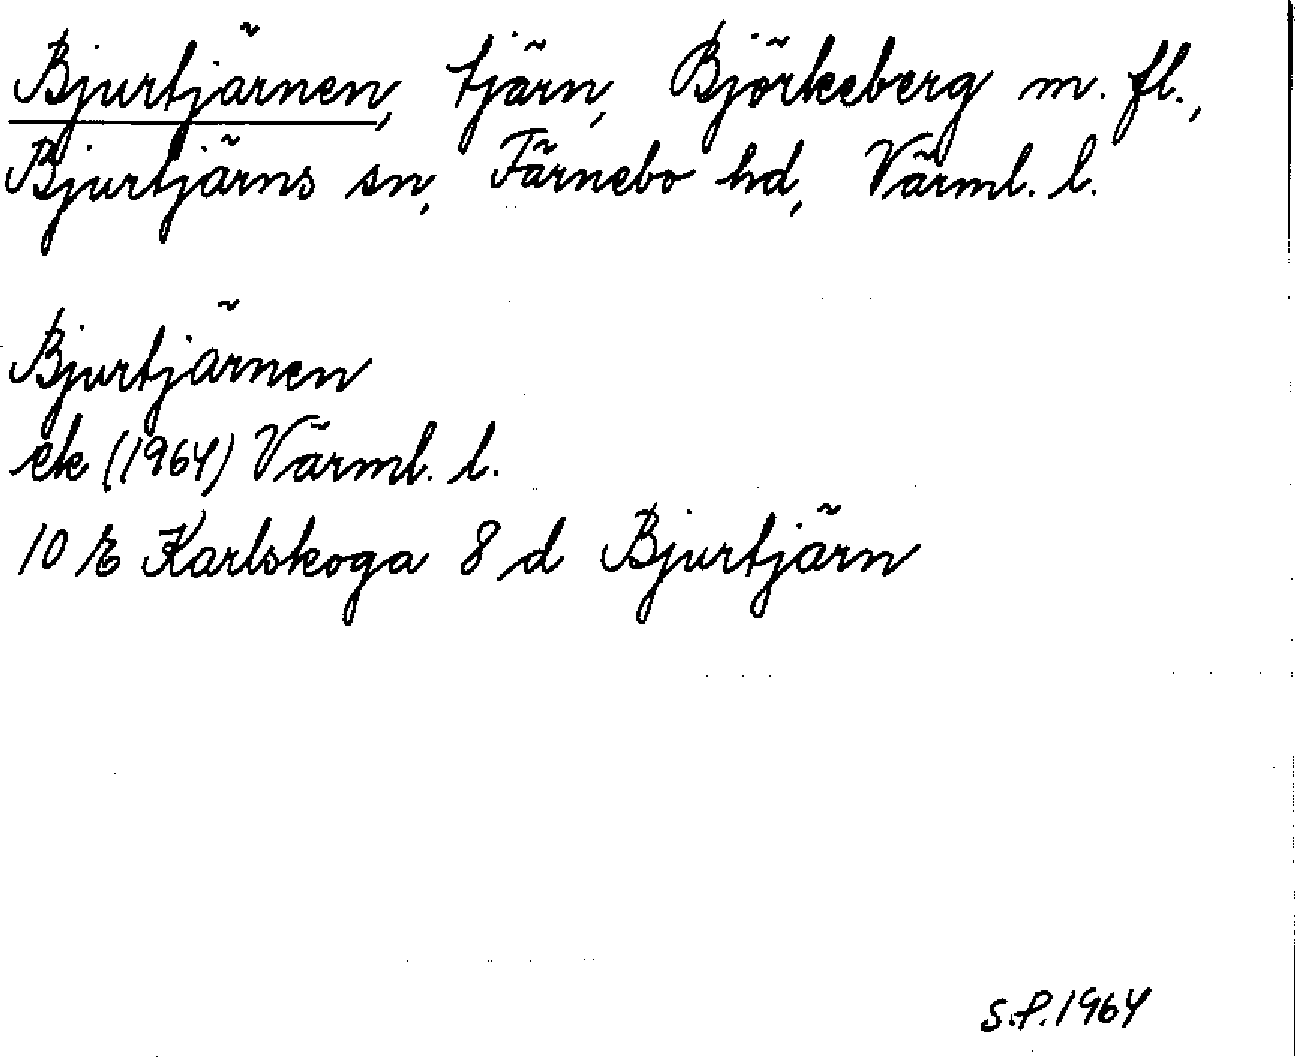 Bjurtjärnen, tjärn, Björkeberg m. fl.,
Bjurtjärns sn, Färnebo hd, Värml. l.
Bjurtjärnen
ek (1964) Värml. l.
10 E Karlskoga 8 d Bjurtjärn
S.P. 1964